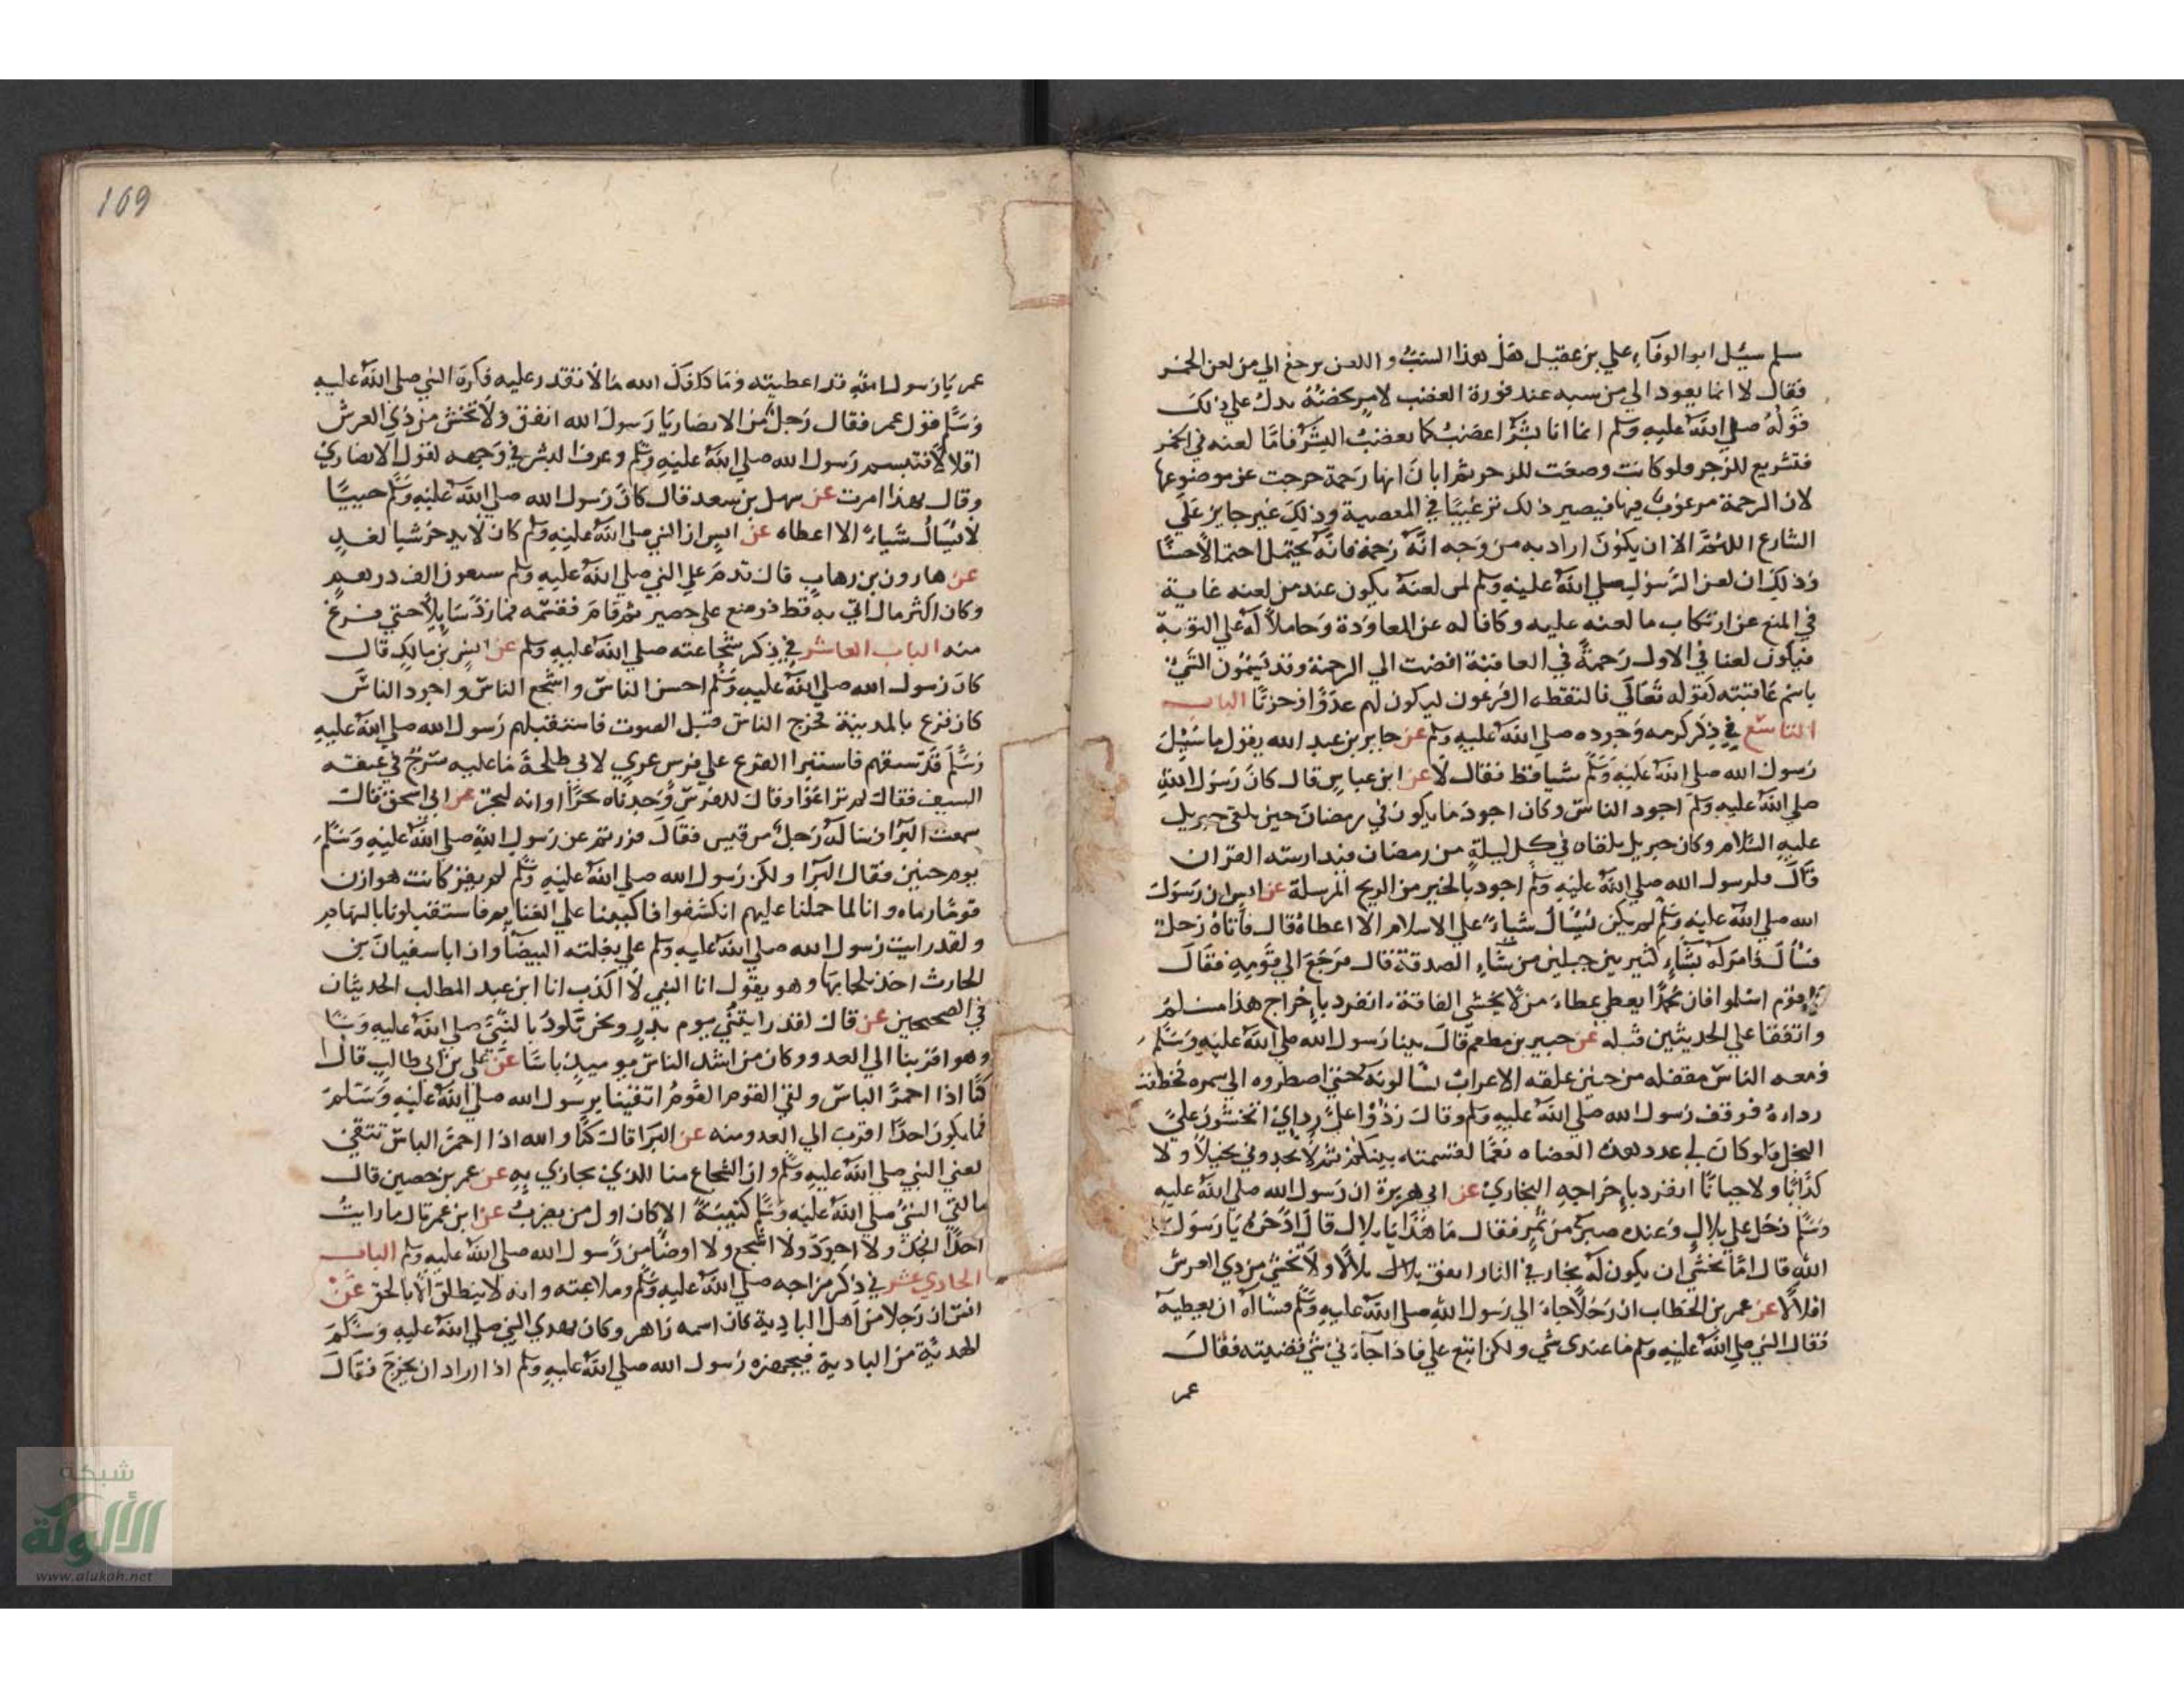 سلم سيئل ابو الوفاء علي بن عقيل هل هذا السبُّ واللعن يرجع الي من لعن الخمر
فقال لا انما يعود الي من سبه عند فورة الغضب لامر يخصّه يدل علي ذلك
قوله صلي الله عليه وسلم انما انا بشر اغضب كما يغضب البشر فامّا لعنه في الخمر
فتشريع للزجر ولو كانت وضعت للزجر ثم ابان انها رحمة خرجت عن موضوعها
لان الرحمة مرغوب فيها فيصير ذلك ترغيبًا في المعصية وذلك غير جايز علي
الشارع اللهمّ الا ان يكون اراد به من وجه انه رحمة فانه يحتمل احتمالا حسنًا
وذلك ان لعن الرسول صلي الله عليه وسلم لمن لعنه يكون عند من لعنه غاية
في المنع عن ارتكاب ما لعنه عليه وكافا له عن المعاودة وحاملا له علي التوبة
فيكون لعنا في الاول رحمةً في العاقبة افضت الي الرحمة وقد يسمون الشي
باسم عاقبته لقوله تعالي فالتقطه ال فرعون ليكون لهم عدوًا وحزنًا الباب
التاسع في ذكر كرمه وجوده صلي الله عليه وسلم عن جابر بن عبد الله يقول ما سئل
رسول الله صلي الله عليه وسلم شيا قط فقال لا عن ابن عباس قال كان رسول الله
صلي الله عليه وسلم اجود الناس وكان اجود ما يكون في رمضان حين يلقي جبريل
عليه السلام وكان جبريل يلقاه في كل ليلة من رمضان فيدارسه القران
قال فلرسول الله صلي الله عليه وسلم اجود بالخير من الريح المرسلة عن انس ان رسول
الله صلي الله عليه وسلم لم يكن يُسْاَل شياءً علي الاسلام الا اعطاه قال فاتاه رجل
فسأل فامر له بشاءٍ كثير بين جبلين من شاءِ الصدقة قال فرجع الي قومه فقال
يا قوم اسلوا فان محمدًا يعطي عطاءَ من لا يخشي الفاقة انفرد باخراج هذا مسلم
واتفقا علي الحديثين قبله عن جبير بن مطعم قال بينا رسول الله صلي الله عليه وسلم
ومعه الناس مقفله من حنين علقه الاعراب يسالونه حتي اضطروه الي سمره فخطفت
رداءه فوقف رسول الله صلي الله عليه وسلم وقال رُدّوا عليّ ردايَ اتخشون عليّ
البخل فلو كان لي عدد هذه العضاه نعَمًا لقسمته بينكم ثم لا تجدوني بخيلاً ولا
كذّابًا ولا جبانًا انفرد باخراجه البخاري عن ابي هريرة ان رسول الله صلي الله عليه
وسلم دخل علي بلال وعنده صُبَرٌ من تمر فقال ما هذا يا بلال قال ادّخره يا رسول
الله قال امَا تخشي ان يكون له بخار في النار انفق بلال بلالا ولا تخش من ذي العرش
اقلالًا عن عمر بن الخطاب ان رجلاً جاء الي رسول الله صلي الله عليه وسلم فسأله ان يعطيه
فقال النبي صلي الله عليه وسلم ما عندي شي ولكن ابتع علي فاذا جآءَني شي قضيته فقال
عمر
109
عمر يا رسول الله قد اعطيته وما كلفك الله ما لا تقدر عليه فكره النبي صلي الله عليه
وسلم قول عمر فقال رجل من الانصار يا رسول الله انفق ولا تخش من ذي العرش
اقلالاً فتبسم رسول الله صلي الله عليه وسلم وعرف البشر في وجهه لقول الانصاري
وقال بهذا امرت عن سهل بن سعد قال كان رسول الله صلي الله عليه وسلم حييًّا
لا يُسأل شياءً الا اعطاه عن انس ان النبي صلي الله عليه وسلم كان لا يدخر شيا لغدٍ
عن هارون بن رهاب قال قدم علي النبي صلي الله عليه وسلم سبعون الف درهم
وكان اكثر مال اتي به قط فوضع علي حصير ثم قام فقسمه فما رد سَايلاً حتي فرغ
منه الباب العاشر في ذكر شجاعته صلي الله عليه وسلم عن انس بن مالك قال
كان رسول الله صلي الله عليه وسلم احسن الناس واشجع الناس واجود الناس
كان فزع بالمدينة فخرج الناس قبل الصوت فاستقبلهم رسول الله صلي الله عليه
وسلم قد سبقهم فاستبرا الفزع علي فرس عري لابي طلحة ما عليه سرج في عنقه
السيف فقال لم تراعوا وقال للفرس وجدناه بحرًا او انه لبحر عن ابي اسحق قال
سمعت البرآ وسأله رجل من قيس فقال فررتم عن رسول الله صلي الله عليه وسلم
يوم حنين فقال البرآ ولكن رسول الله صلي الله عليه وسلم لم يفز كانت هوازن
قومًا رماه وانا لما حملنا عليهم انكشفوا فاكببنا علي الغنايم فاستقبلونا بالسهام
ولقد رايت رسول الله صلي الله عليه وسلم علي بغلته البيضآ وان ابا سفيان بن
الحارث اخذ بلجامها وهو يقول انا النبي لا الكذب انا ابن عبد المطلب الحديثان
في الصحيحين عن قال لقد رايتُني يوم بدر ونحن نلوذ بالنبي صلي الله عليه وسلم
وهو اقربنا الي العدو وكان من اشد الناس يوميذ باسًا عن علي بن ابي طالب قال
كنّا اذا احمرّ الباس ولقي القوم القوم اتقينا برسول الله صلي الله عليه وسلم
فما يكون احدًا اقرب الي العدو منه عن البرا قال كنّا والله اذا احمرّ الباس نتقي
يعني النبي صلي الله عليه وسلم وان الشجاع منا للذي يحاذي به عن عمر بن حصين قال
ما لقي النبي صلي الله عليه وسلم كتيبةً الا كان اول من يضرب عن ابن عمر قال ما رايت
احدًا انجَدَ ولا اجود ولا اشجع ولا اوضأ من رسول الله صلي الله عليه وسلم الباب
الحادي عشر في ذكر مزاحه صلي الله عليه وسلم وملاعبته وانه لا ينطلق الا بالحق عن
انس ان رجلا من اهل البادية كان اسمه زاهر وكان يهدي النبي صلي الله عليه وسلم
الهديّة من البادية فيجهزه رسول الله صلي الله عليه وسلم اذا اراد ان يخرج فقال
شبكة
الألوكة
www.alukah.net